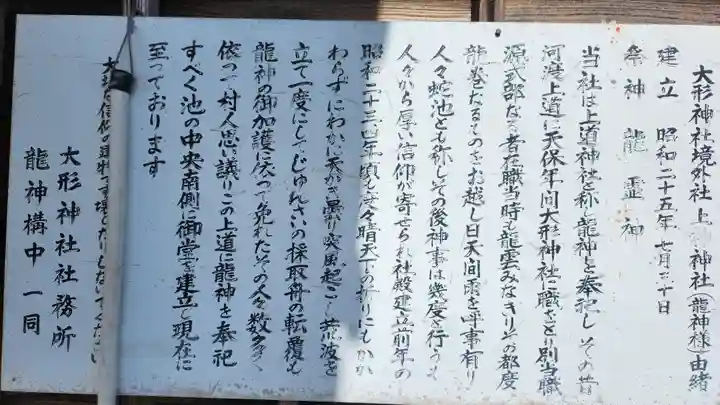 大形神社境外社上 神社(龍神様)由緒
建立 昭和二十五年 七月三十日
祭神 龍霊神
当社は上道神社と称へ龍神を奉祀し その昔
河渡上道に天保年間大形神社に職をとり別当職
源式部なる者在職当時も龍雲みなぎりその都度
龍巻なるものをお越し日天間雨を呼事有り
人々蛇池とも称しその後神事は幾度を行うも
人々から厚い信仰が寄せられ社殿建立前年の
昭和二十三四年頃も度々晴天下の折りにもかか
わらずにわかに天き曇り突風起こし荒波を
立て一度にしてじゅんさいの採取舟の転覆も
龍神の御加護に依つて免れたその人々数多く
依つて村人思い議りこの上道に龍神を奉祀
すべく池の中央南側に御堂を建立し現在に
至っております
大 信仰の建物です壊したりしないでください
大形神社社務所
龍神構中一同